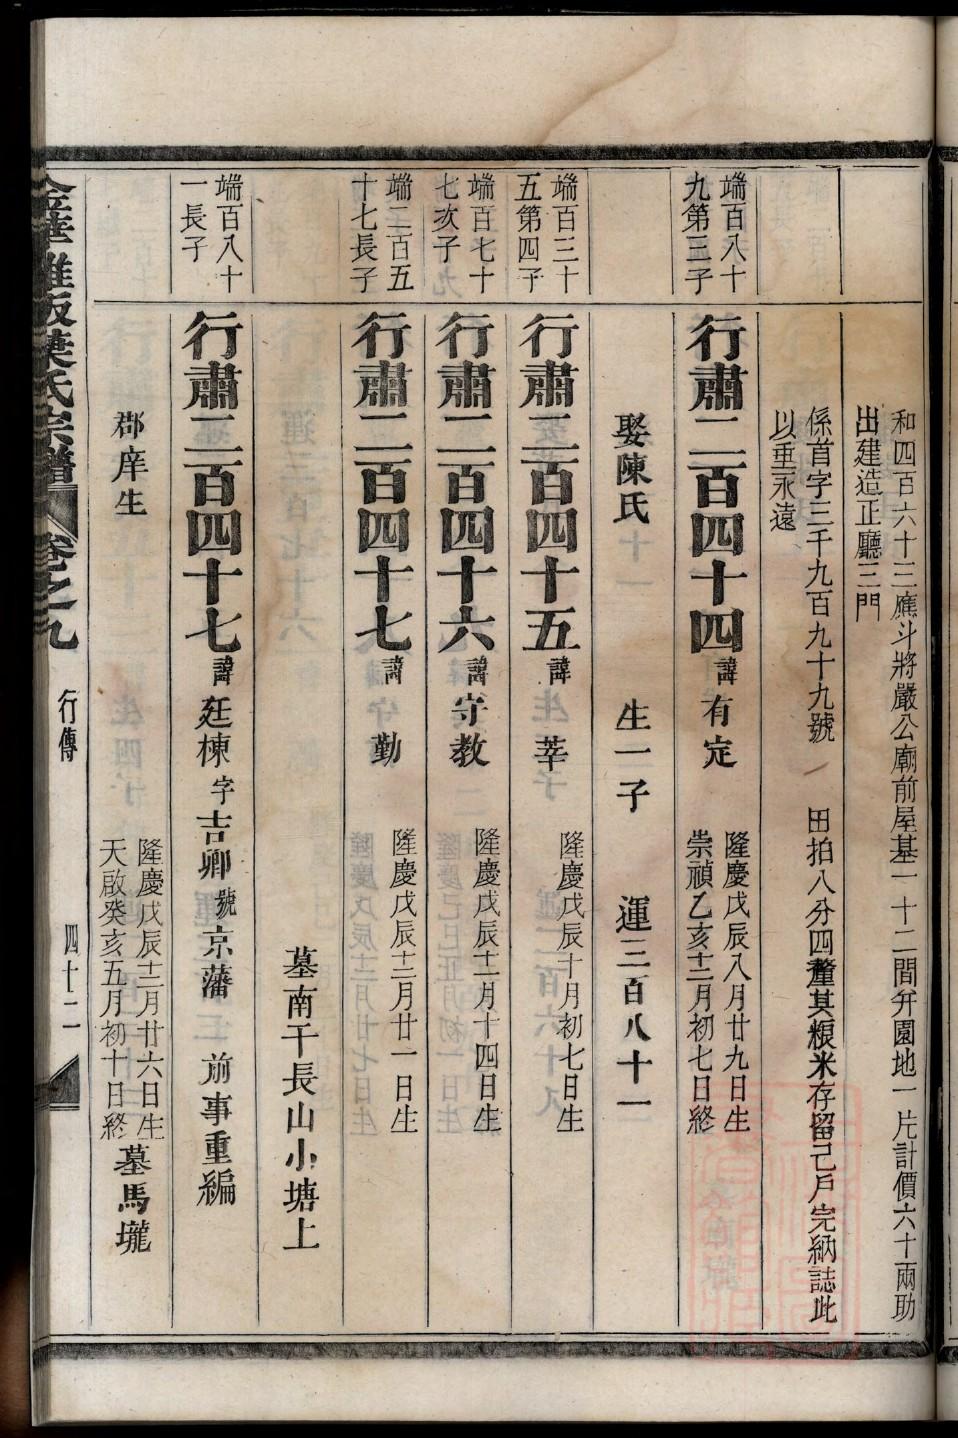 和四百六十三應斗將嚴公廟前屋基一十二間弁園地一片計價六十兩助
出建造正廳三門
係首字三千九百九十九號 田拍八分四釐其粮米存留己戶完納誌此
以垂永遠
端百八十
九第三子
行肅二百四十四 諱有定
隆慶戊辰八月廿九日生
崇禎乙亥十二月初七日終
娶陳氏 生一子 運三百八十一
端百三十
五第四子
行肅二百四十五 諱莘
隆慶戊辰十月初七日生
端百七十
七次子
行肅二百四十六 諱守教
隆慶戊辰十二月十四日生
端二百五
十七長子
行肅二百四十七 諱勤
隆慶戊辰十二月廿一日生
墓南干長山小塘上
端百八十
一長子
行肅二百四十七 諱廷棟 字吉卿 號京藩 前事重編
郡庠生
隆慶戊辰十二月廿六日生
天啟癸亥五月初十日終
墓馬壠
氏宗譜 卷之九 行傳 四十二